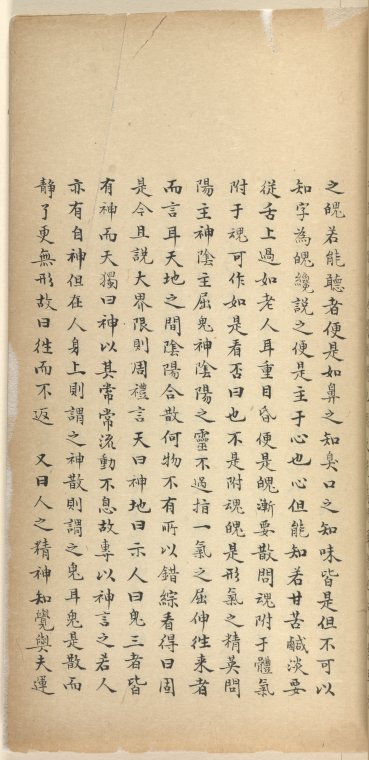 之魄若能聽者便是如鼻之知臭口之知味皆是但不可以
知字為魄纔說之便是主于心也心但能知若甘苦鹹淡要
從舌上過如老人耳重目昏便是魄漸要散問魂附于體氣
附于魂可作如是看否曰也不是附魂魄是形氣之精英問
陽主神陰主屈鬼神陰陽之靈不過指一氣之屈伸徃来者
而言耳天地之間陰陽合散何物不有所以錯綜看得曰固
是今且說大界限則周禮言天曰神地曰示人曰鬼三者皆
有神而天獨曰神以其常常流動不息故專以神言之若人
亦有自神但在人身上則謂之神散則謂之鬼耳鬼是散而
静了更無形故曰徃而不返　又曰人之精神知覺與夫運